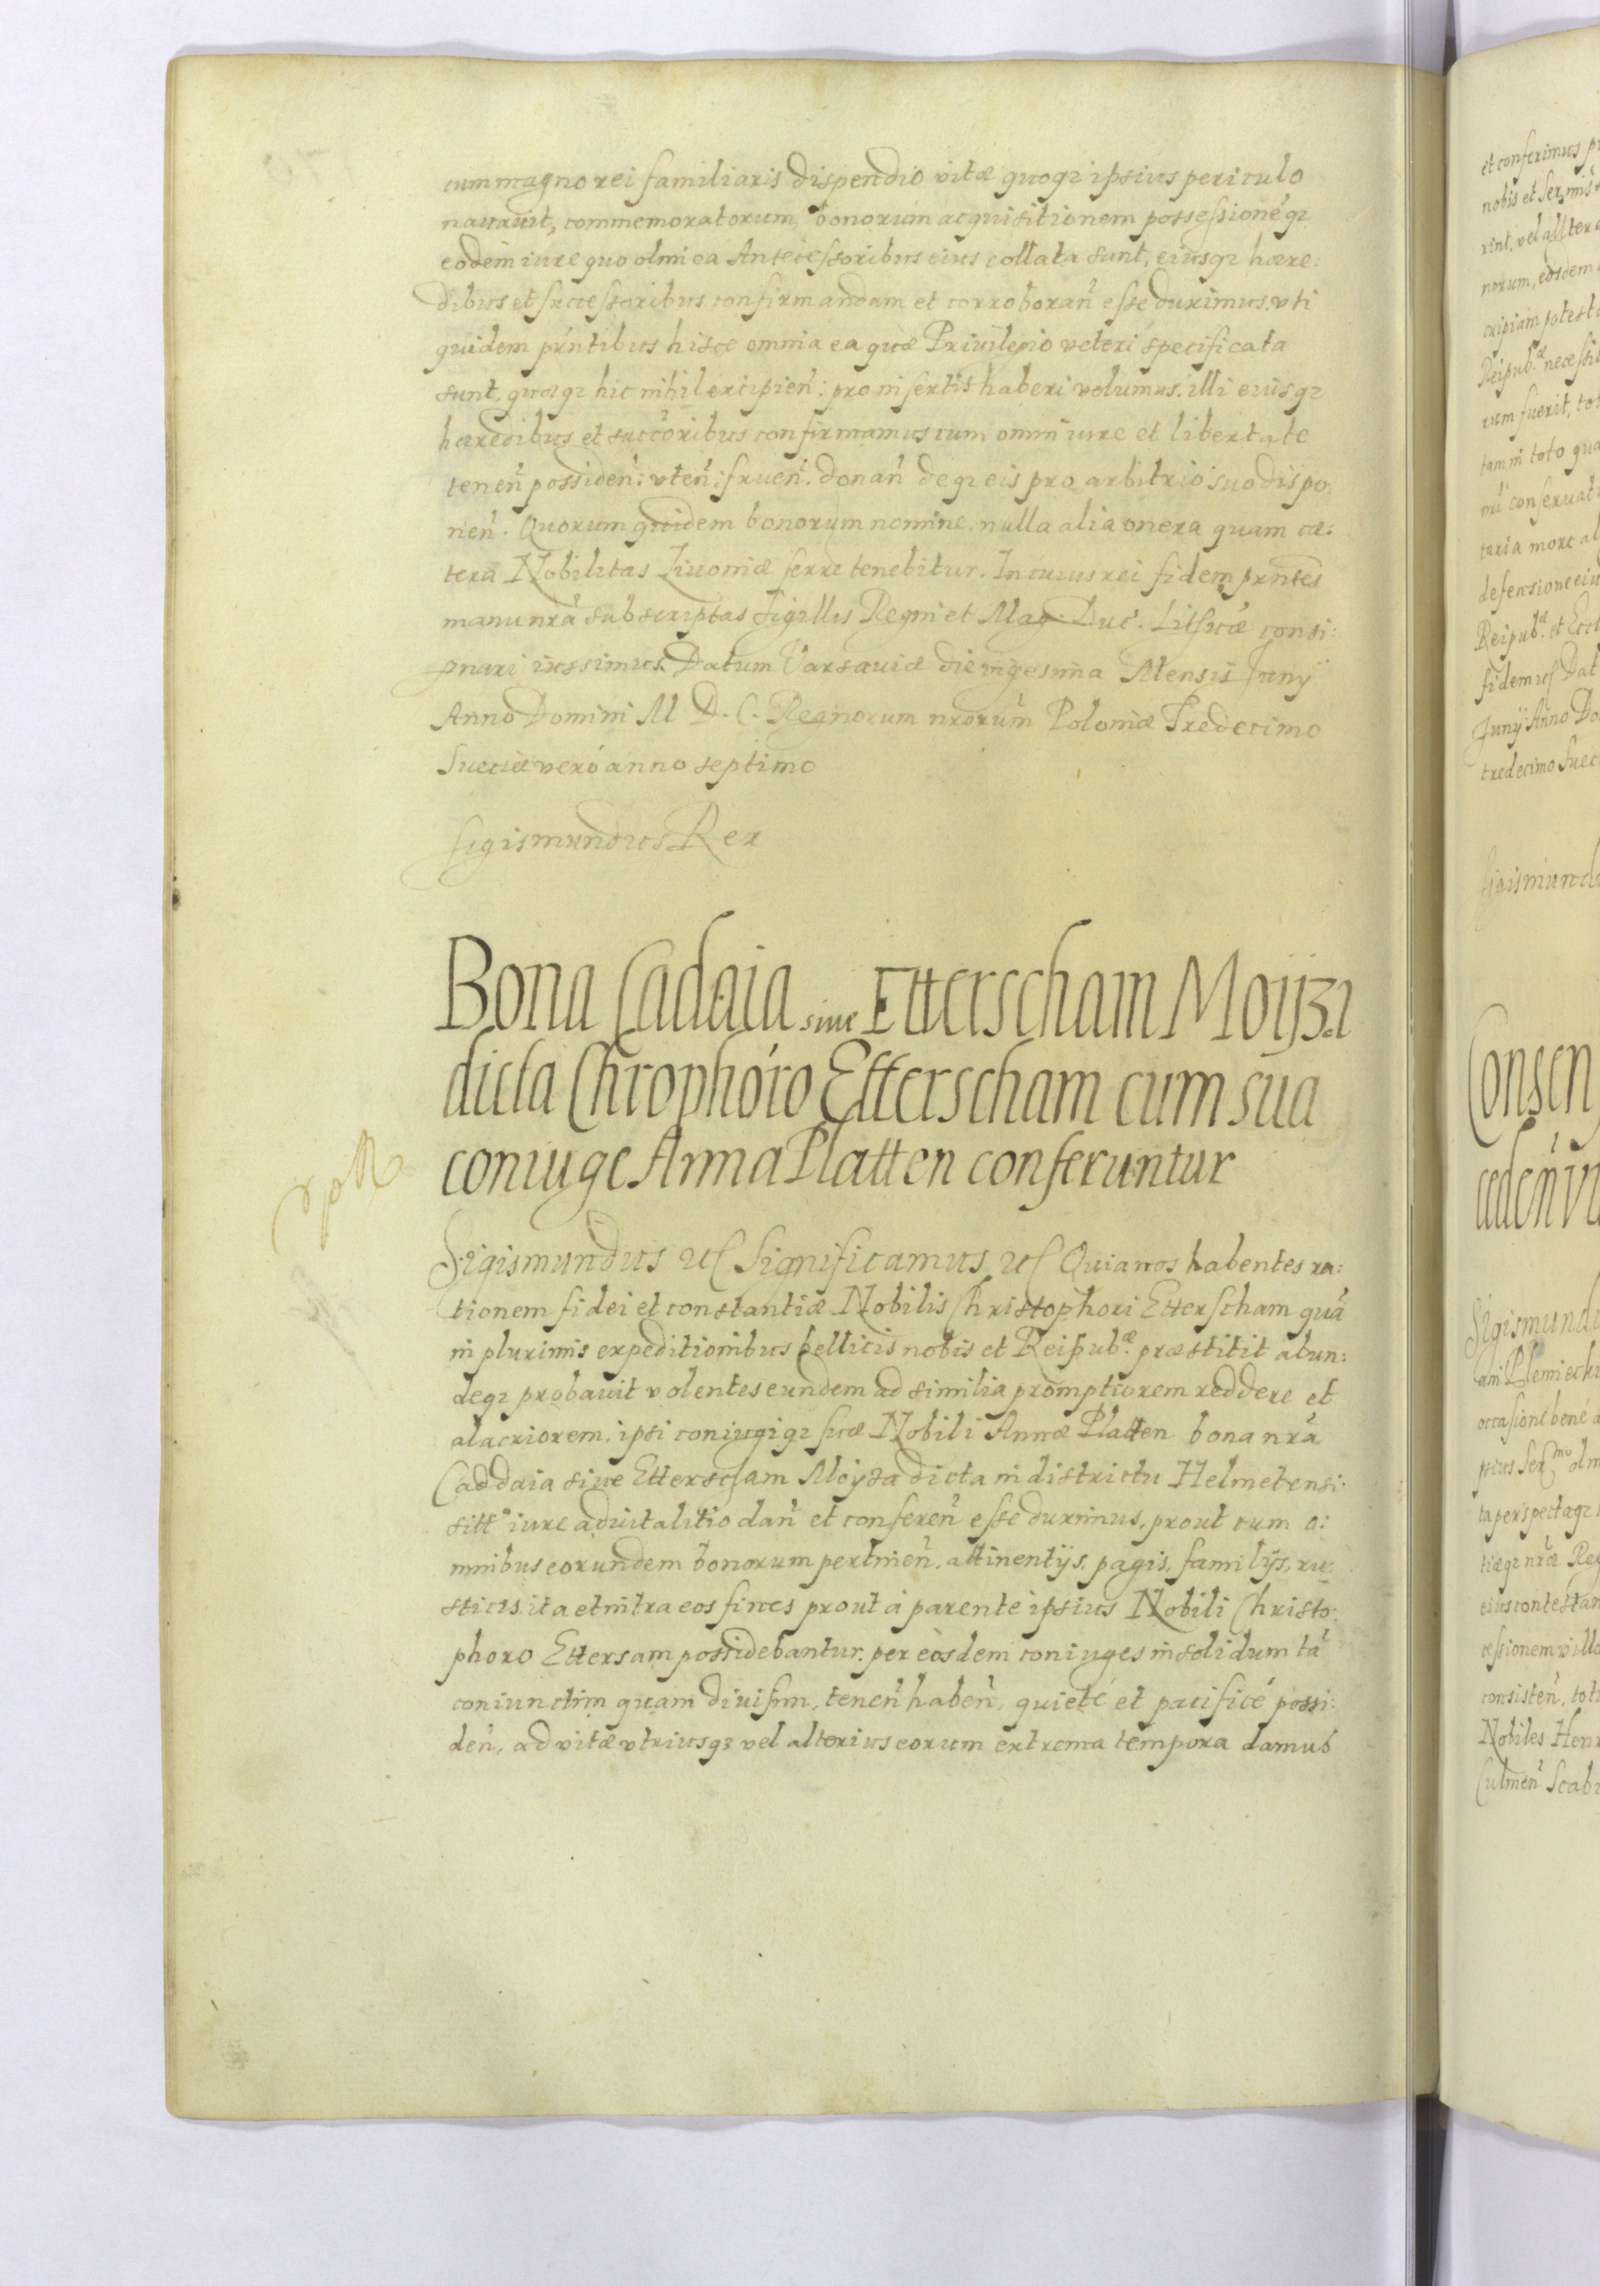 cum magno rei familiaris dispendio vitæ quoqȝ ipsius periculo
nauauit, commemoratorum bonorum acquisitionem possessioneḿqȝ
eodem iure quo olim ea Antecessoribus eius collata sunt, eiusqȝ hære:
dibus et successoribus confirmandam et corroborań esse duximus. vti
quidem pr̃ntibus hisce omnia ea quæ Priuilegio veteri specificata
sunt, quæqȝ hic nihil excipień: pro insertis haberi volumus. illi eiusqȝ
hæredibus et succ̃oribus confirmamus cum omni iure et libertate
teneń possideń: vteń: frueń. donań deqȝ eis pro arbitrio suo dispo:
neń. Quorum quidem bonorum nomine. nulla alia onera quam cæ:
tera Nobilitas Liuoniæ ferre tenebitur. In cuius rei fidem pr̃ntes
manu nr̃a subscriptas sigillis Regni et Mag. Duc. Lithuæ consi:
gnari iussimus. Datum Varsauiæ die vigesima Mensis Junÿ
Anno Domini M D. C. Regnorum nr̃orum Poloniæ Tredecimo
Sueciæ veró anno septimo
Sigismundus Rex
Bona Cadaia siue Etterscham Moijza
dicta Chrophóro Etterscham cum sua
coniuge Anna Platten conferuntur
Sigismundus ɛ Significamus ɛ Quia nos habentes ra:
tionem fidei et constantiæ Nobilis Christophori Etterscham quã
in plurimis expeditionibus bellicis nobis et Reipub.æ præstitit abun:
deqȝ probauit volentes eundem ad similia promptiorem reddere et
alacriorem. ipsi coniugiqȝ suæ Nobili Annæ Platten bona nr̃a
Caddaia siue Etterscham Moyza dicta in districtu Helmetensi.
sitt° iure aduitalitio dań et confereń esse duximus. prout cum o:
mnibus eorundem bonorum pertineń. attinentijs. pagis. familijs, ru:
sticis. ita et intra eos fines prout à parente ipsius Nobili Christo:
phoro Ettersam possidebantur. per eosdem coniuges in solidum tã
coniunctim quam diuisim, teneń habeń, quieté et pacificé possi:
deń, ad vitæ vtriusqȝ vel alterius eorum extrema tempora damus
et conferimus
rint, vel alter
norum, eosdem
cipiam potest
rum fuerit, tot
tam in toto qua
taria more al
defensione eiu
Reipub.æ et Eccl
fidem ɛ Dat
Junÿ Anno Do
tredecimo Suec
Sigismund
Consen
cedeń
Sigismund
occasione bené
ta perspectaqȝ
tiæqȝ nr̃æ Re
eius contestan
cessionem villa
consisteń, toti
Nobiles Hen
Culmeń Scab